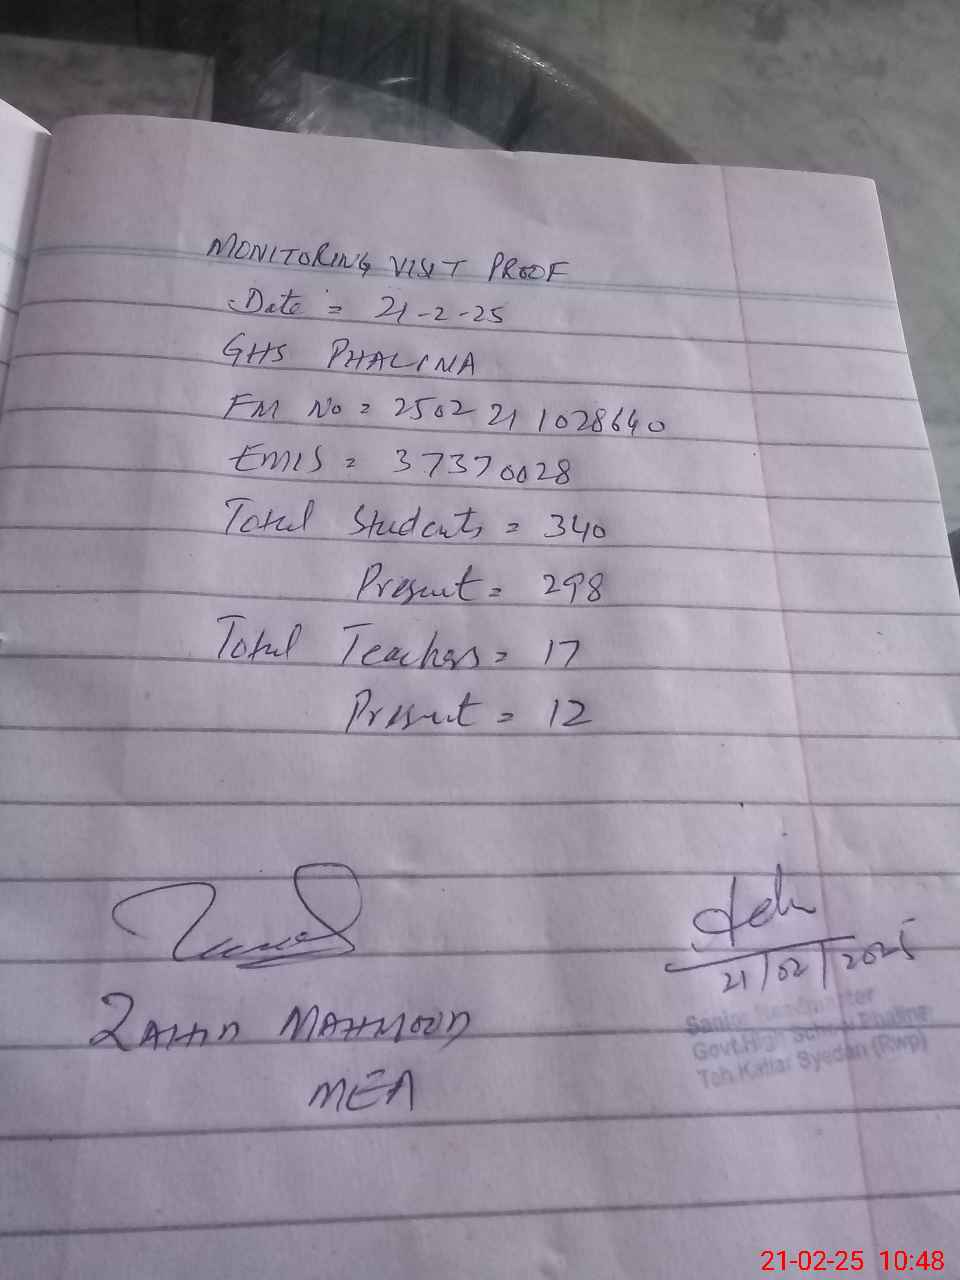 MONITORING VISIT PROOF
Date = 21-2-25
GHS PHALINA
FM No = 2502 21 1028640
EMIS = 37370028
Total Students = 340
Present = 298
Total Teachers = 17
Present = 12
21/02/2025
ZAHID MAHMOOD
MEA
Senior Headmaster
Govt.High School Phalina
Teh Kallar Syedan (Rwp)
21-02-25 10:48